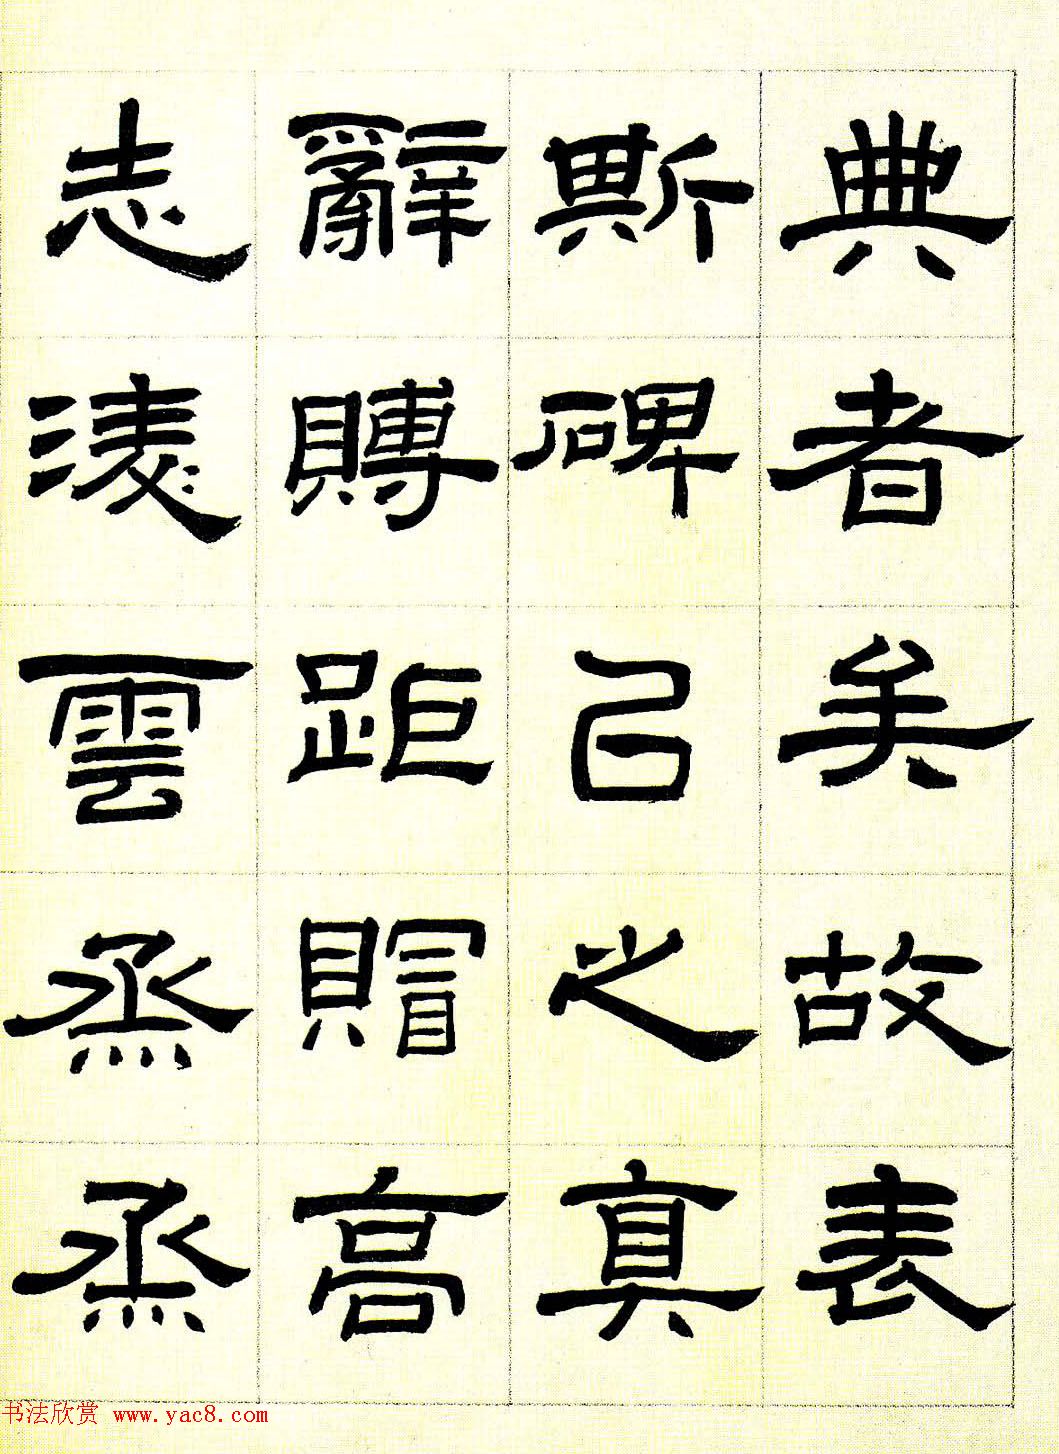 典者矣故表
斯碑㠯之真
辭賻距賵高
志淩雲烝烝
书法欣赏 www.yac8.com